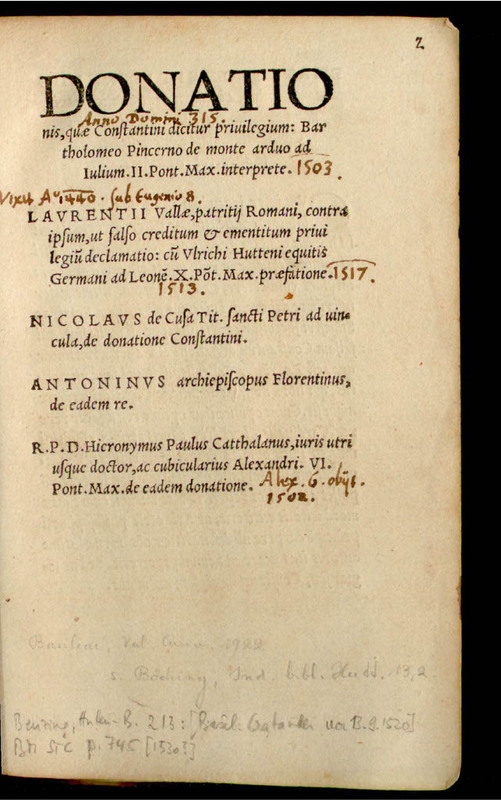 2
DONATIO
Anno Domini 315.
nis, quæ Conſtantini dicitur priuilegium: Bar
tholomeo Pincerno de monte arduo ad
Iulium. II. Pont. Max. interprete. 1503.
Vixit Aº 1440. sub Eugenio 8.
LAVRENTII Vallæ, patritij Romani, contra
ipſum, ut falſo creditum & ementitum priui
legiũ declamatio: cũ Vlrichi Hutteni equitis
Germani ad Leonẽ. X. Põt. Max. præfatione. 1517.
1513.
NICOLAVS de Cuſa Tit. ſancti Petri ad uin⸗
cula, de donatione Conſtantini.
ANTONINVS archiepiſcopus Florentinus,
de eadem re.
R. P. D. Hieronymus Paulus Catthalanus, iuris utri
uſque doctor, ac cubicularius Alexandri. VI.
Pont. Max. de eadem donatione. Alex. 6. obijt.
1502.
s. Böcking, Ind. bibl. Hutt. 13,2.
Benzing, Hutten-B. 213: [Basel: Cratander
BM STC p. 745 [1530?]